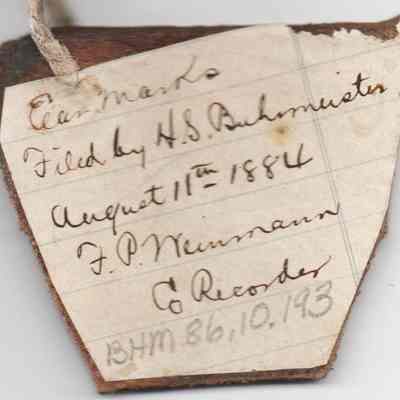 Ear Marks
Filed by H.S. Buhrmeister
August 11th 1884
F.P. Weinmann
Co Recorder
BHM 86.10.193